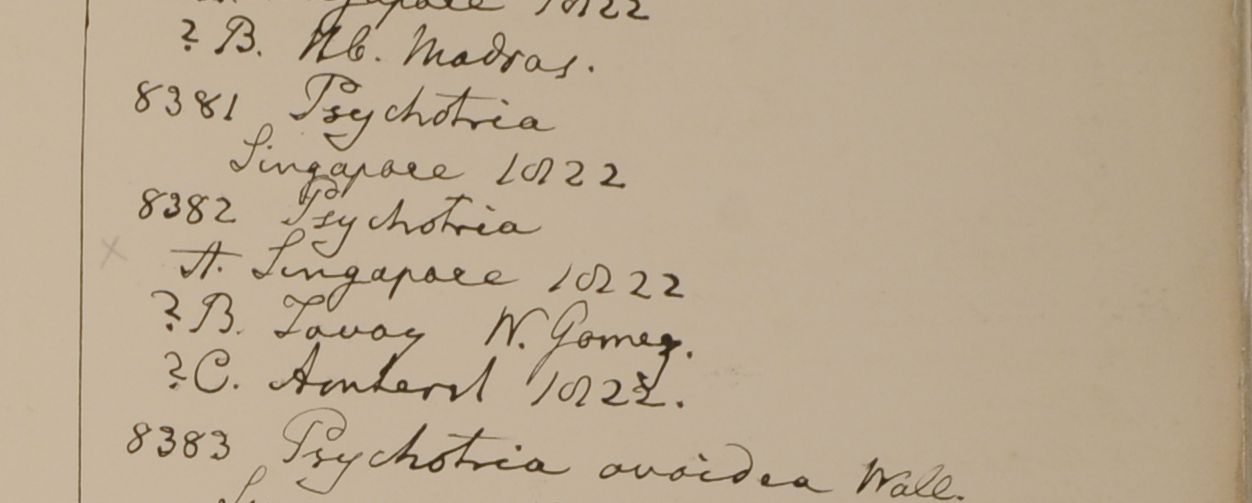 Singapore 1822
? B. Hb. Madras.
8381 Psychotria
Singapore 1822
8382 Psychotria
× A. Singapore 1822
? B. Tavoy W. Gomez.
? C. Amherst 1822.
8383 Psychotria ovoidea Wall.